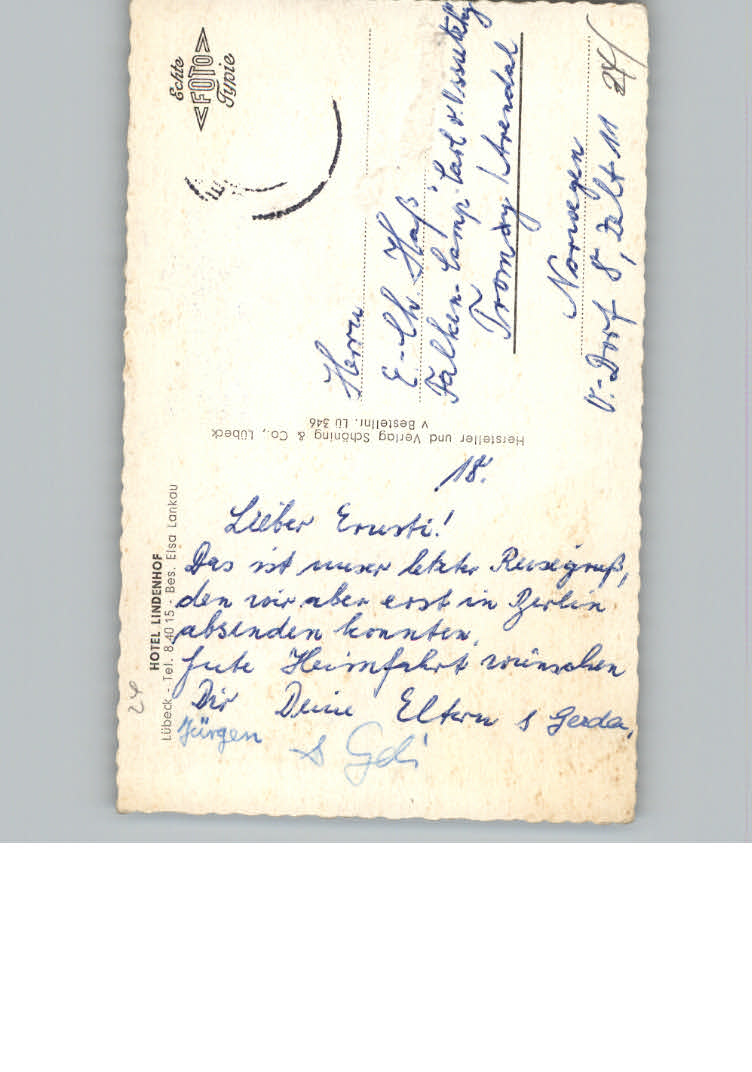 HOTEL LINDENHOF
Lübeck - Tel. 8 40 15 - Bes. Elsa Lankau
18.
Lieber Ernsti!
Das ist unser letzter Reisegruß,
den wir aber erst in Berlin
absenden konnten.
Gute Heimfahrt wünschen
Dir Deine Eltern & Gerda,
Jürgen & Gdi
Hersteller und Verlag Schöning & Co., Lübeck
V Bestellnr. Lü 346
Echte
FOTO
Typie
Herrn
E.-Ch. Haß
Falken-Camp "Carl v. Ossietzky"
Tromöy / Arendal
Norwegen
V.-Dorf 8, Zelt 11
24